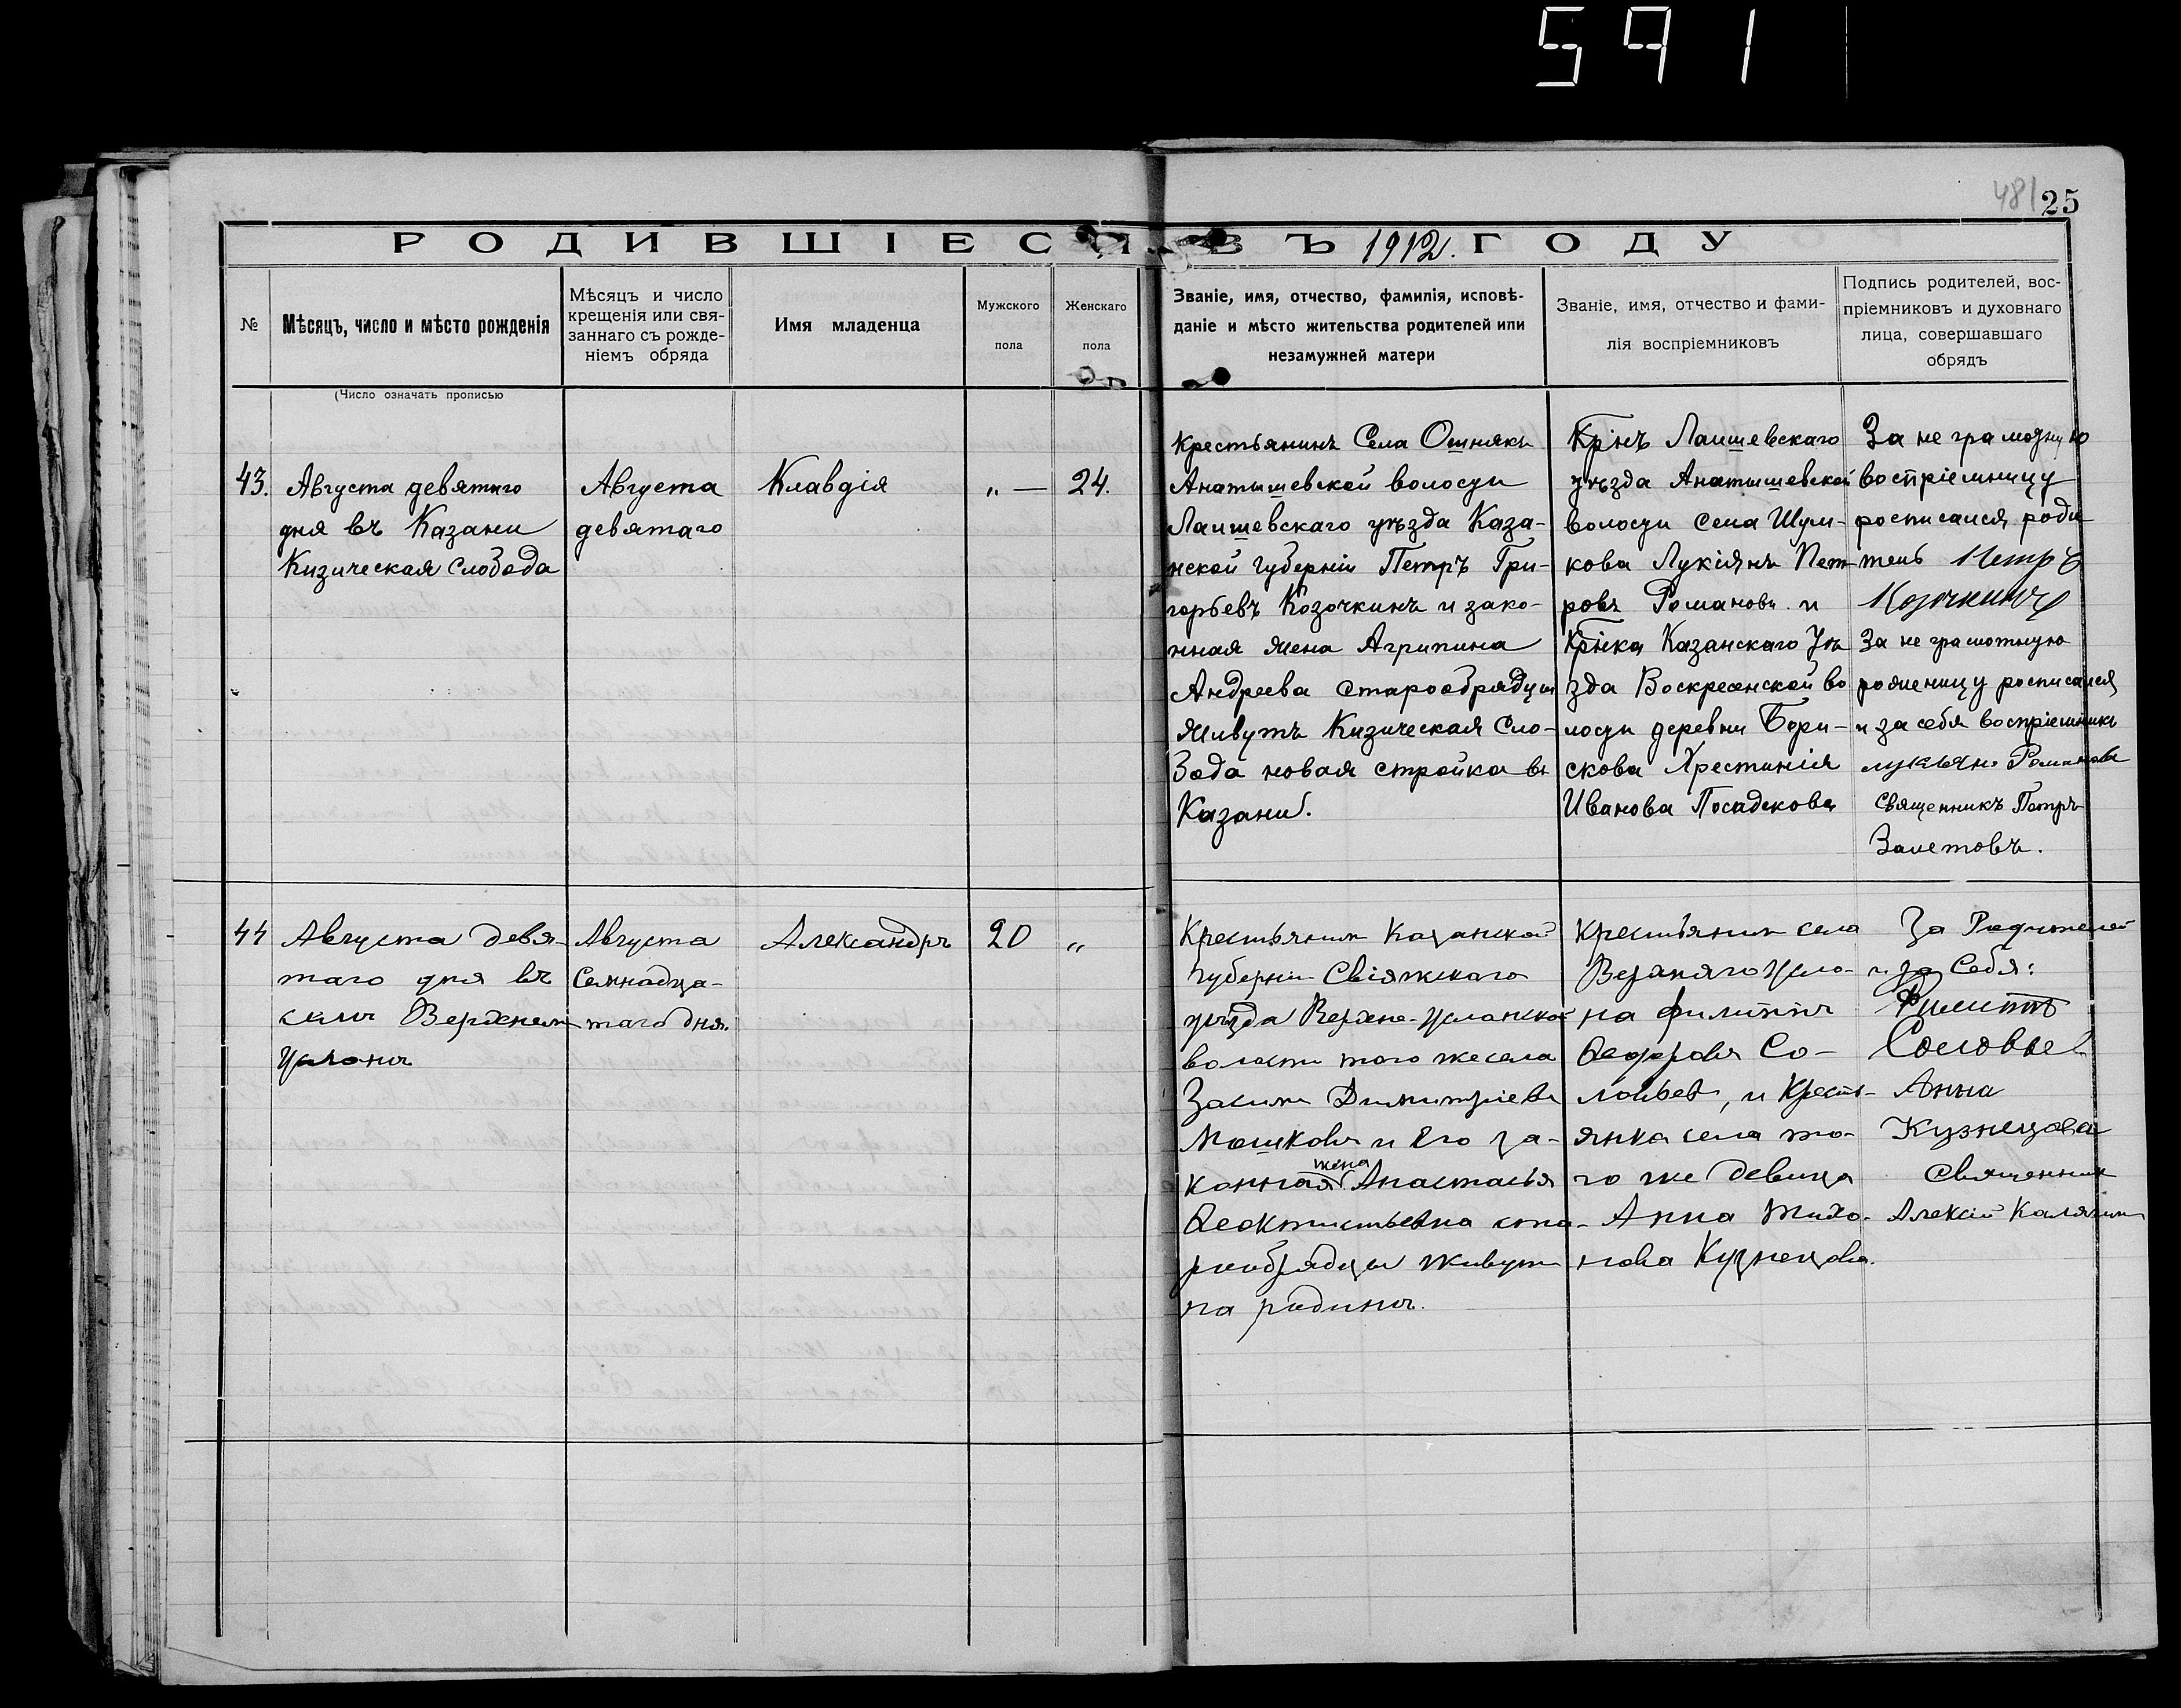 591
481 25
РОДИВШІЕСЯ ВЪ 1912. ГОДУ
№
Мѣсяцъ, число и мѣсто рожденія
Мѣсяцъ и число
крещенія или свя-
заннаго съ рожде-
ніемъ обряда
Имя младенца
Мужского
пола
Женскаго
пола
Званіе, имя, отчество, фамилія, исповѣ-
даніе и мѣсто жительства родителей или
незамужней матери
Званіе, имя, отчество и фами-
лія воспріемниковъ
Подпись родителей, вос-
пріемниковъ и духовнаго
лица, совершавшаго
обрядъ
(Число означать прописью
43.
Августа девятаго
дня въ Казани
Кизическая Слобода
Августа
девятаго
Клавдія
„ —
24.
Крестьянинъ Села Ошняки
Анатышевской волости
Лаишевскаго уѣзда Каза-
нской Губерніи Петръ Гри-
горьевъ Козочкинъ и зако-
нная жена Агрипина
Андреева старообрядцы
Живутъ Кизическая Сло-
бода новая стройка въ
Казани.
Крінъ Лаишевскаго
уѣзда Анатышевской
волости села Шум-
кова Лукіянъ Пет-
ровъ Романовъ и
Крінка Казанскаго Уѣ
зда Воскресенской во
лости деревни Бори-
скова Хрестинія
Иванова Посадскова
За не грамотную
воспріемницу
росписался роди
тель Петръ
Козочкинъ
За не грамотную
роженицу росписался
и за себя воспріемникъ
лукьянъ Романовъ
Священникъ Петръ
Залетовъ.
44
Августа девя-
таго дня въ
селѣ Верхнем
Услонѣ
Августа
Семнадца-
таго дня.
Александръ
20
„
Крестьянин Казанской
Губерни Свіяжскаго
уѣзда Верхне-Услонской
волости того же села
Димитріевъ
Мошковъ и Его за-
конная жена Анастасья
Феоктистьевна ста-
рообрядцы живут
на родинѣ.
Крестьянин села
Верхняго Усло-
на филиппъ
Федоровъ Со-
ловьев, и Кресть-
янка села то-
го же девица
Анна Тихо-
нова Кузнецова.
За Родителей
и за Себя:
Филиппъ
Соловьев
Анна
Кузнецова
Священник
Алексій Калягин